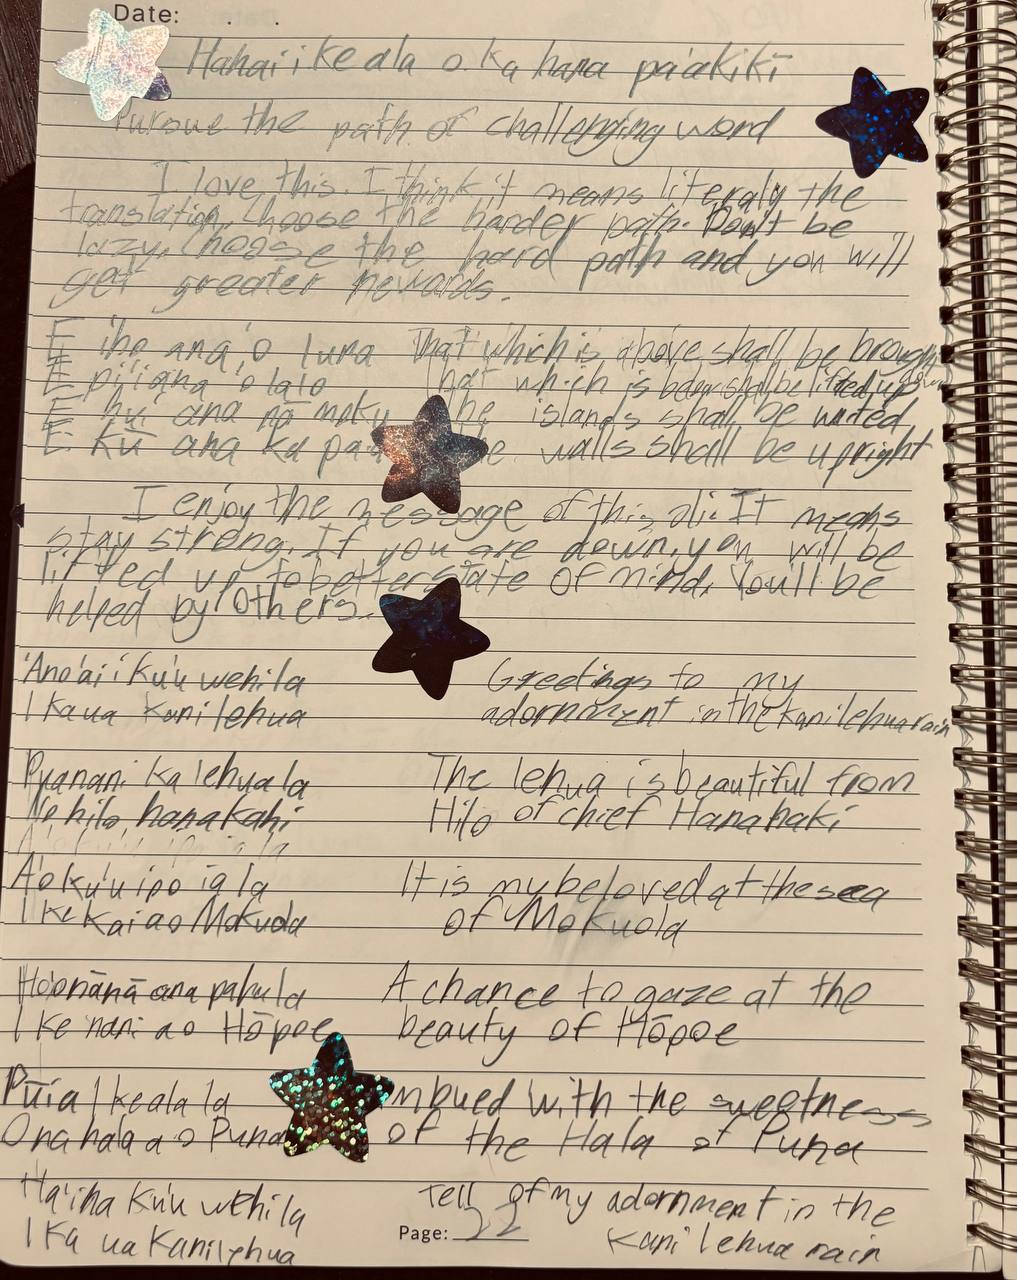 Date: . .
Hahai i ke ala o ka hana pa'akikī
Pursue the path of challenging word
I love this. I think it means literaly the
translation, choose the harder path. Don't be
lazy, choose the hard path and you will
get greater rewards.
E iho ana 'o luna That which is above shall be brough down
E pi'i ana 'o lalo That which is below shall be lifted up
E hui ana nā moku The islands shall be united
E kū ana ka walls shall be upright
I enjoy the message of this oli. It means
stay strong. If you are down, you will be
lifted up to better state of mind. You'll be
helped by others.
'Ano'ai i ku'u wehi la Greetings to my
I ka ua kanilehua adornment in the kanilehua rain
Pua nani ka lehua la The lehua is beautiful from
No hilo hanakahi Hilo of chief Hanahaki
A'o ku'u ipo ia la It is my beloved at the sea
I ke kai ao Mokuola of Mokuola
Ho'onānā ana paha la A chance to gaze at the
I ke nani a o Hōpoe beauty of Hōpoe
Pūia I ke ala la mbued with the sweetness
Ona hala a o Puna of the Hala of Puna
Ha'ina ku'u wehi la Tell of my adornment in the
I ka ua kanilehua kani lehua rain
Page: 22